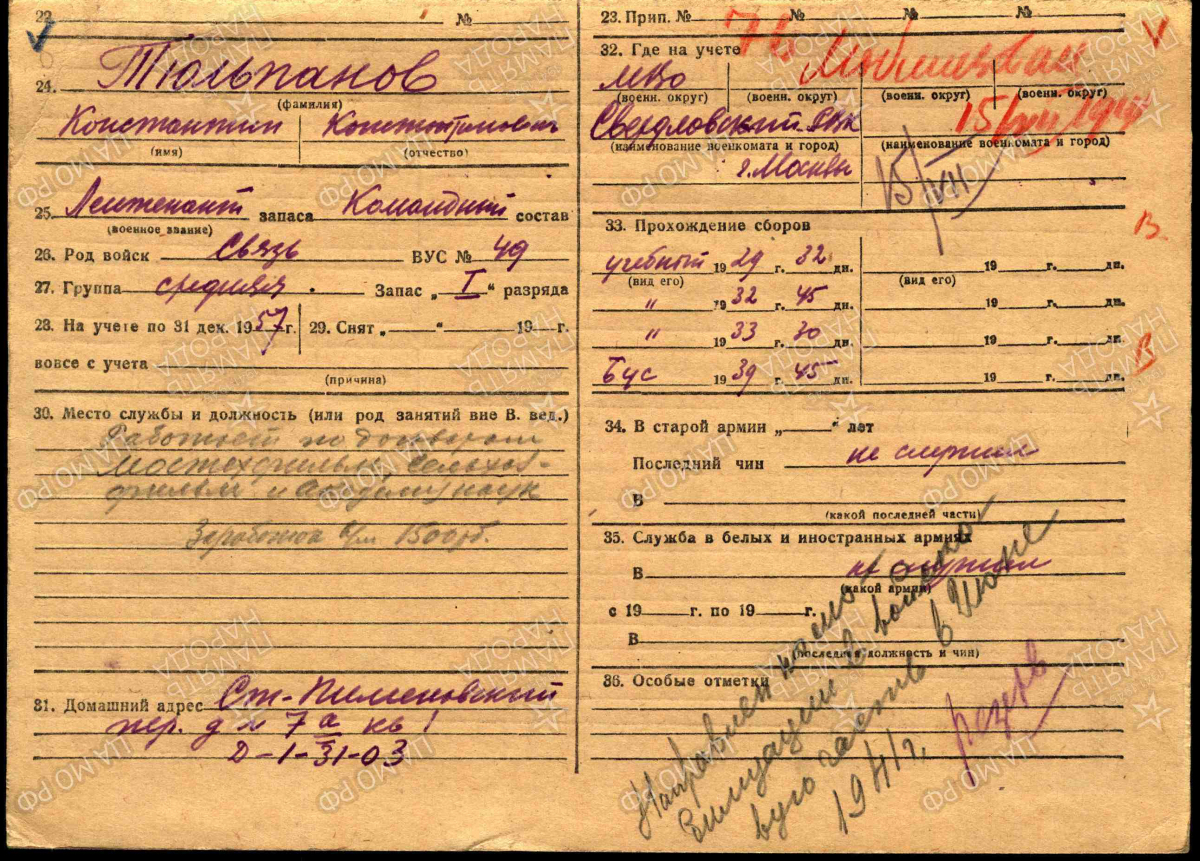 22. № 
24. Тюльпанов
(фамилия)
Константин Константинович
(имя) (отчество)
25. Лейтенант запаса Командный состав
(военное звание)
26. Род войск Связь ВУС № 49
27. Группа средняя. Запас „I“ разряда
28. На учете по 31 дек. 1957 г. 29. Снят „ “ 19 г.
вовсе с учета
(причина)
30. Место службы и должность (или род занятий вне В. вед.)
Работает по договорам
Мостехфильм, Сельхоз-
фильм и Академ наук
Заработок 1500 рб.
31. Домашний адрес Ст-Пименовский
пер. д № 7а кв 1
Д-1-31-03
23. Прип. № № № №
32. Где на учете
МВО
(военн. округ) (военн. округ) (военн. округ) (военн. округ)
Свердловский РВК
(наименование военкомата и город) (наименование военкомата и город)
г. Москвы
15/VII
33. Прохождение сборов
учебный 1929 г. 32 дн. 19 г. дн.
(вид его) (вид его)
„ 1932 г. 45 дн. 19 г. дн.
„ 1933 г. 30 дн. 19 г. дн.
Бус 1939 г. 45 дн. 19 г. дн.
В
В
34. В старой армии „ “ лет
Последний чин не служил
В
(какой последней части)
35. Служба в белых и иностранных армиях
В не служил
(какой армии)
с 19 г. по 19 г.
В
(последняя должность и чин)
36. Особые отметки
Направлен по мо
билизации в войско
вую часть в Июне
1941 г.
резерв
ПАМЯТЬ НАРОДА
ЦАМО РФ